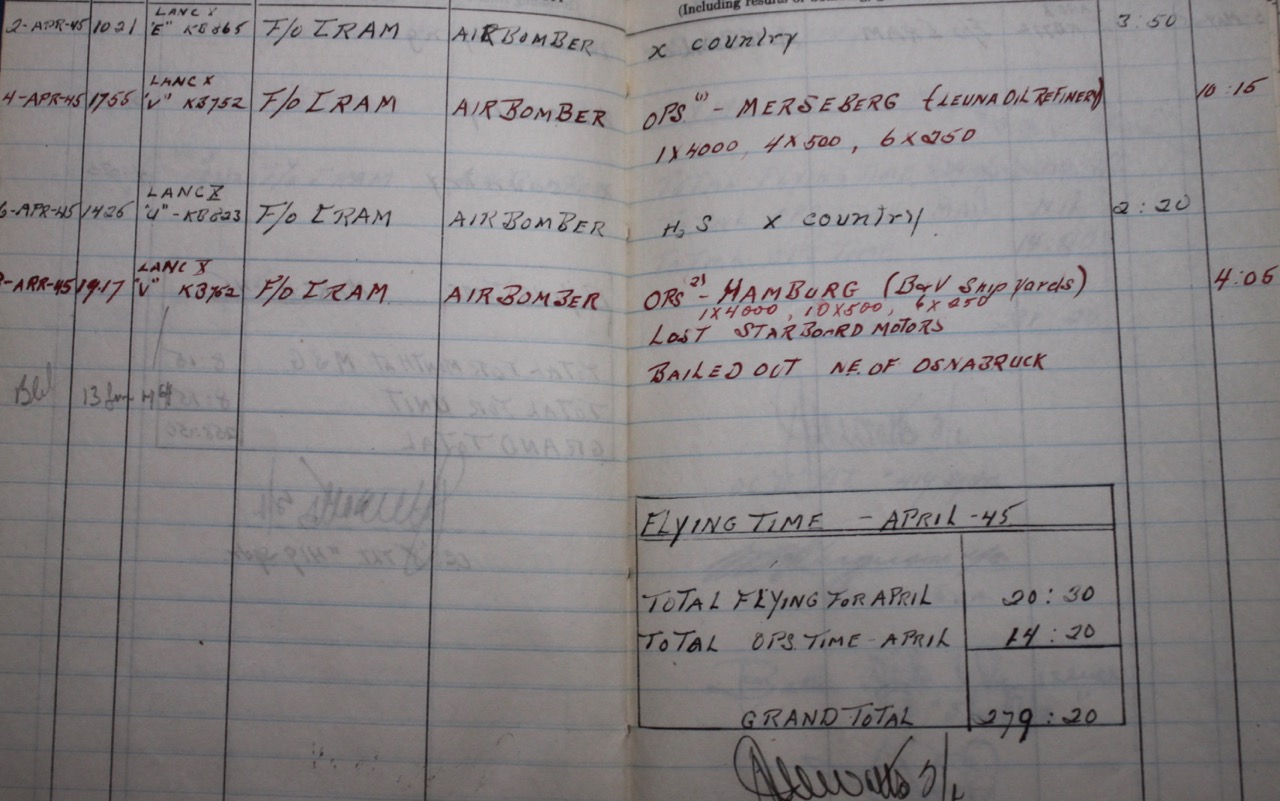 (Including results of
2-APR-45 1021 LANC X "E" KB865 F/O IRAM AIR BOMBER X country 3:50
4-APR-45 1755 LANC X "V" KB752 F/O IRAM AIR BOMBER OPS (1) - MERSEBERG (LEUNA OIL REFINERY) 10:15
1X4000, 4X500, 6X250
6-APR-45 1426 LANC X "U" - KB823 F/O IRAM AIR BOMBER H2S X country 2:20
-APR-45 1917 LANC X "V" KB752 F/O IRAM AIR BOMBER OPS 2) - HAMBURG (B&V Ship yards) 4:05
1X4000, 10X500, 6X250
LOST STARBOARD MOTORS
BAILED OUT NE. OF OSNABRUCK
13
FLYING TIME - APRIL - 45
TOTAL FLYING FOR APRIL 20:30
TOTAL OPS. TIME - APRIL 14:20
GRAND TOTAL 279:20